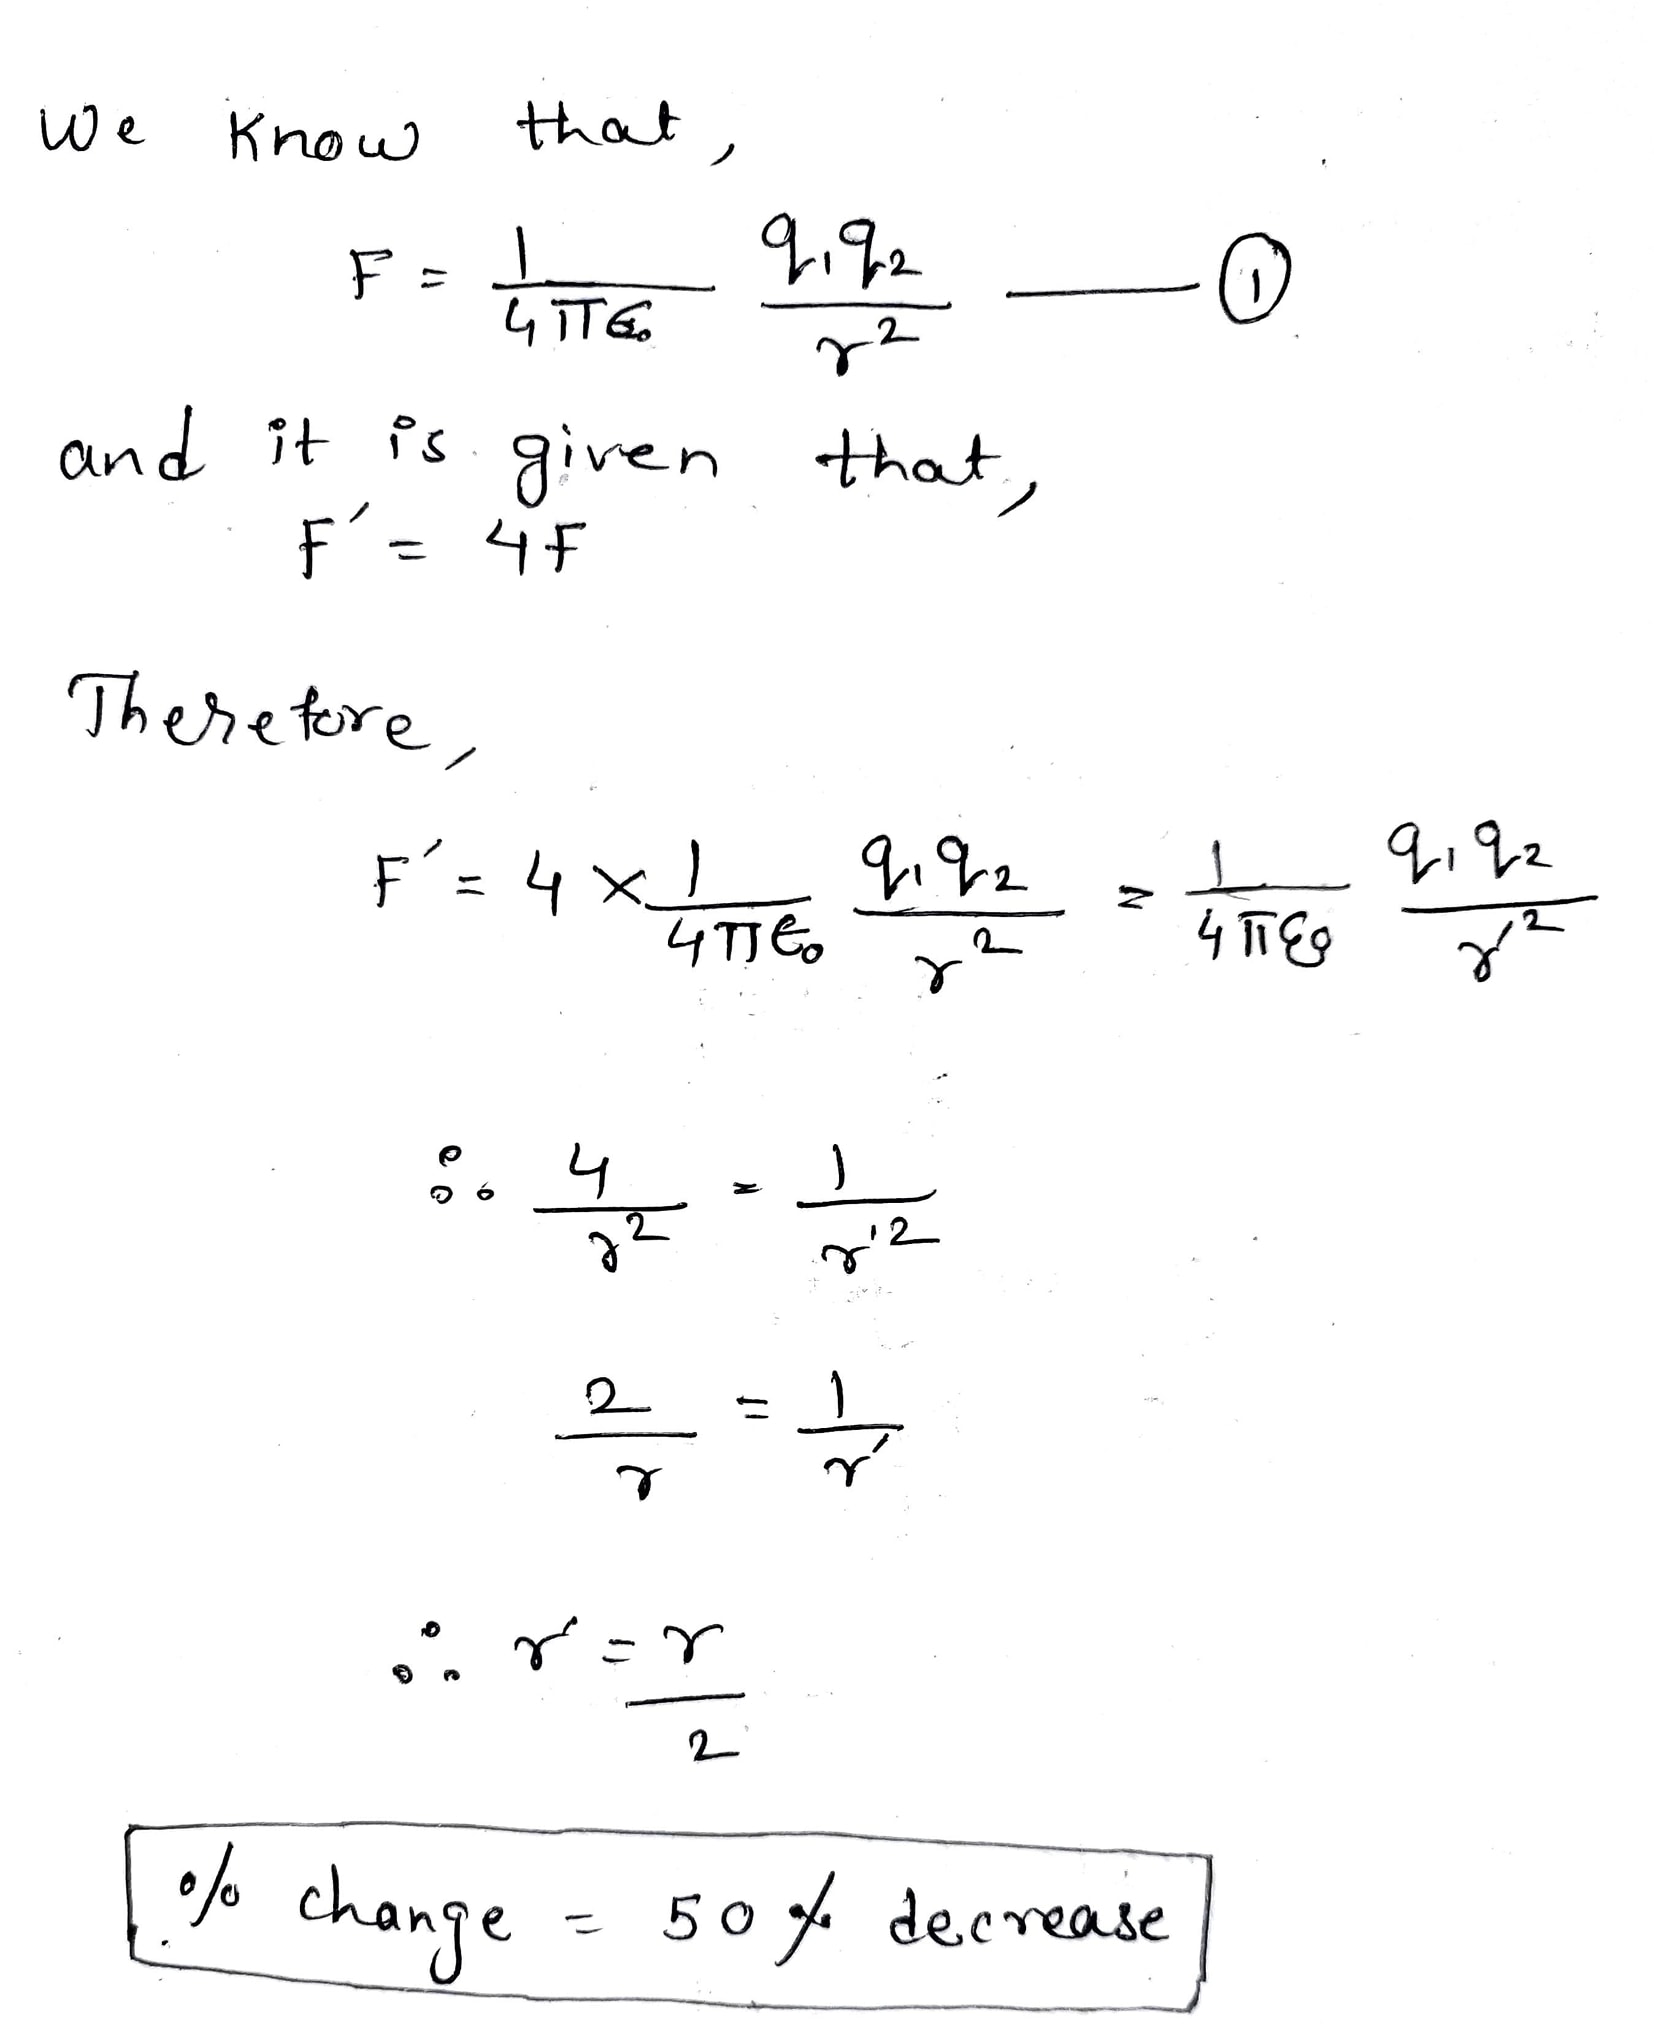 We know that,
F = 1/4πε₀ q₁q₂/r² —— ①
and it is given that,
F′ = 4F
Therefore,
F′ = 4 × 1/4πε₀ q₁q₂/r² = 1/4πε₀ q₁q₂/r′²
∴ 4/r² = 1/r′²
2/r = 1/r′
∴ r′ = r/2
% change = 50% decrease